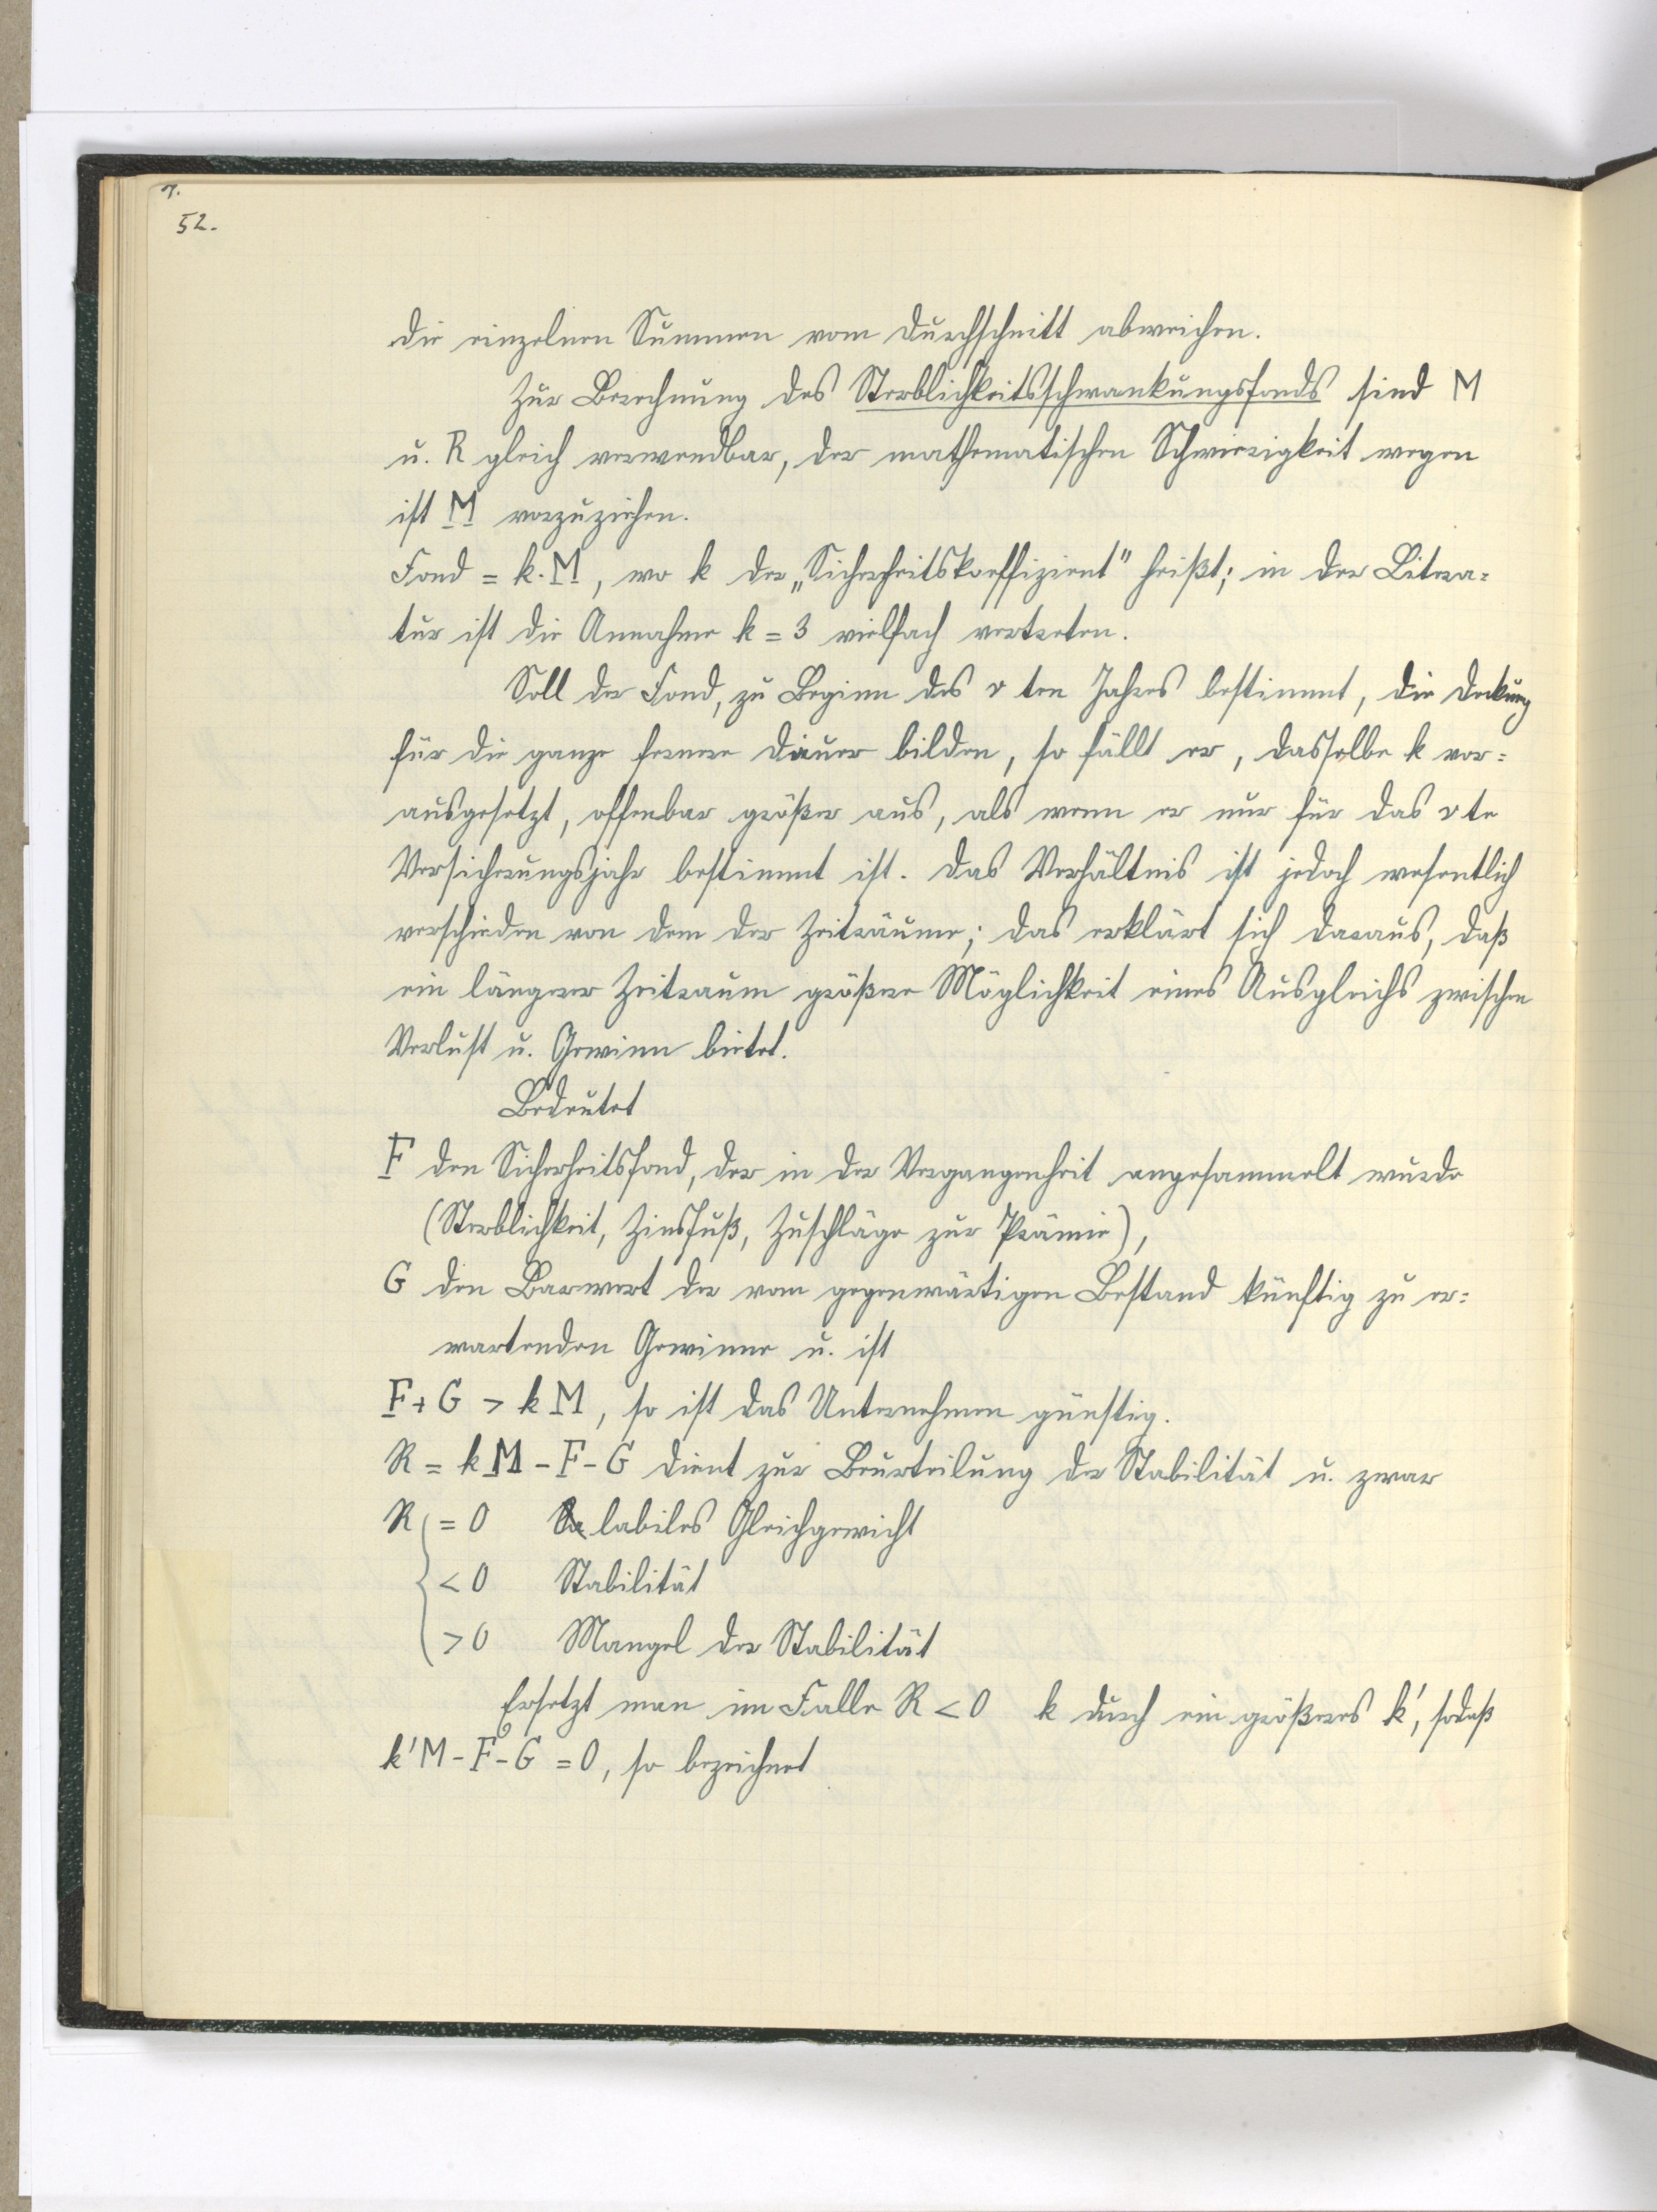 52.
die einzelnen Summen vom Durchschnitt abweichen.
Zur Berechnung des Sterblichkeitsschwankungsfonds sind M
u. R gleich verwendbar, der mathematischen Schwierigkeit wegen
ist M vorzuziehen.
Fond = k. M, wo k der „Sicherheitskoeffizient" heißt; in der Litera=
tur ist die Annahme k = 3 vielfach vertreten.
Soll der Fond, zu Beginn des v ten Jahres bestimmt, die Deckung
für die ganze fernere Dauer bilden, so fällt er, dasselbe k vor=
ausgesetzt, offenbar größer aus, als wenn er nur für das v te
Versicherungsjahr bestimmt ist. Das Verhältnis ist jedoch wesentlich
verschieden von dem der Zeiträume; das erklärt sich daraus, daß
ein längerer Zeitraum größere Möglichkeit eines Ausgleichs zwischen
Verlust u. Gewinn bietet.
Bedeutet
F den Sicherheitsfond, der in der Vergangenheit angesammelt wurde
(Sterblichkeit, Zinsfuß, Zuschläge zur Prämie),
G den Barwert der vom gegenwärtigen Bestand künftig zu er=
wartenden Gewinne u. ist
F + G > k M, so ist das Unternehmen günstig.
R = k M - F - G dient zur Beurteilung der Stabilität u. zwar
R { = 0 labiles Gleichgewicht
< 0 Stabilität
> 0 Mangel der Stabilität
Ersetzt man im Falle R < 0 k durch ein größeres k', sodaß
k'M - F - G = 0, so bezeichnet